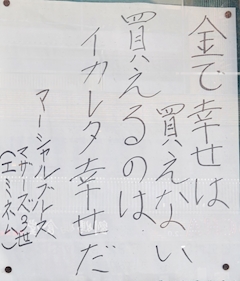 金で幸せは
買えない
買えるのは
イカレタ幸せだ
マーシャルブルース
マザーズ3世
(エミネム)